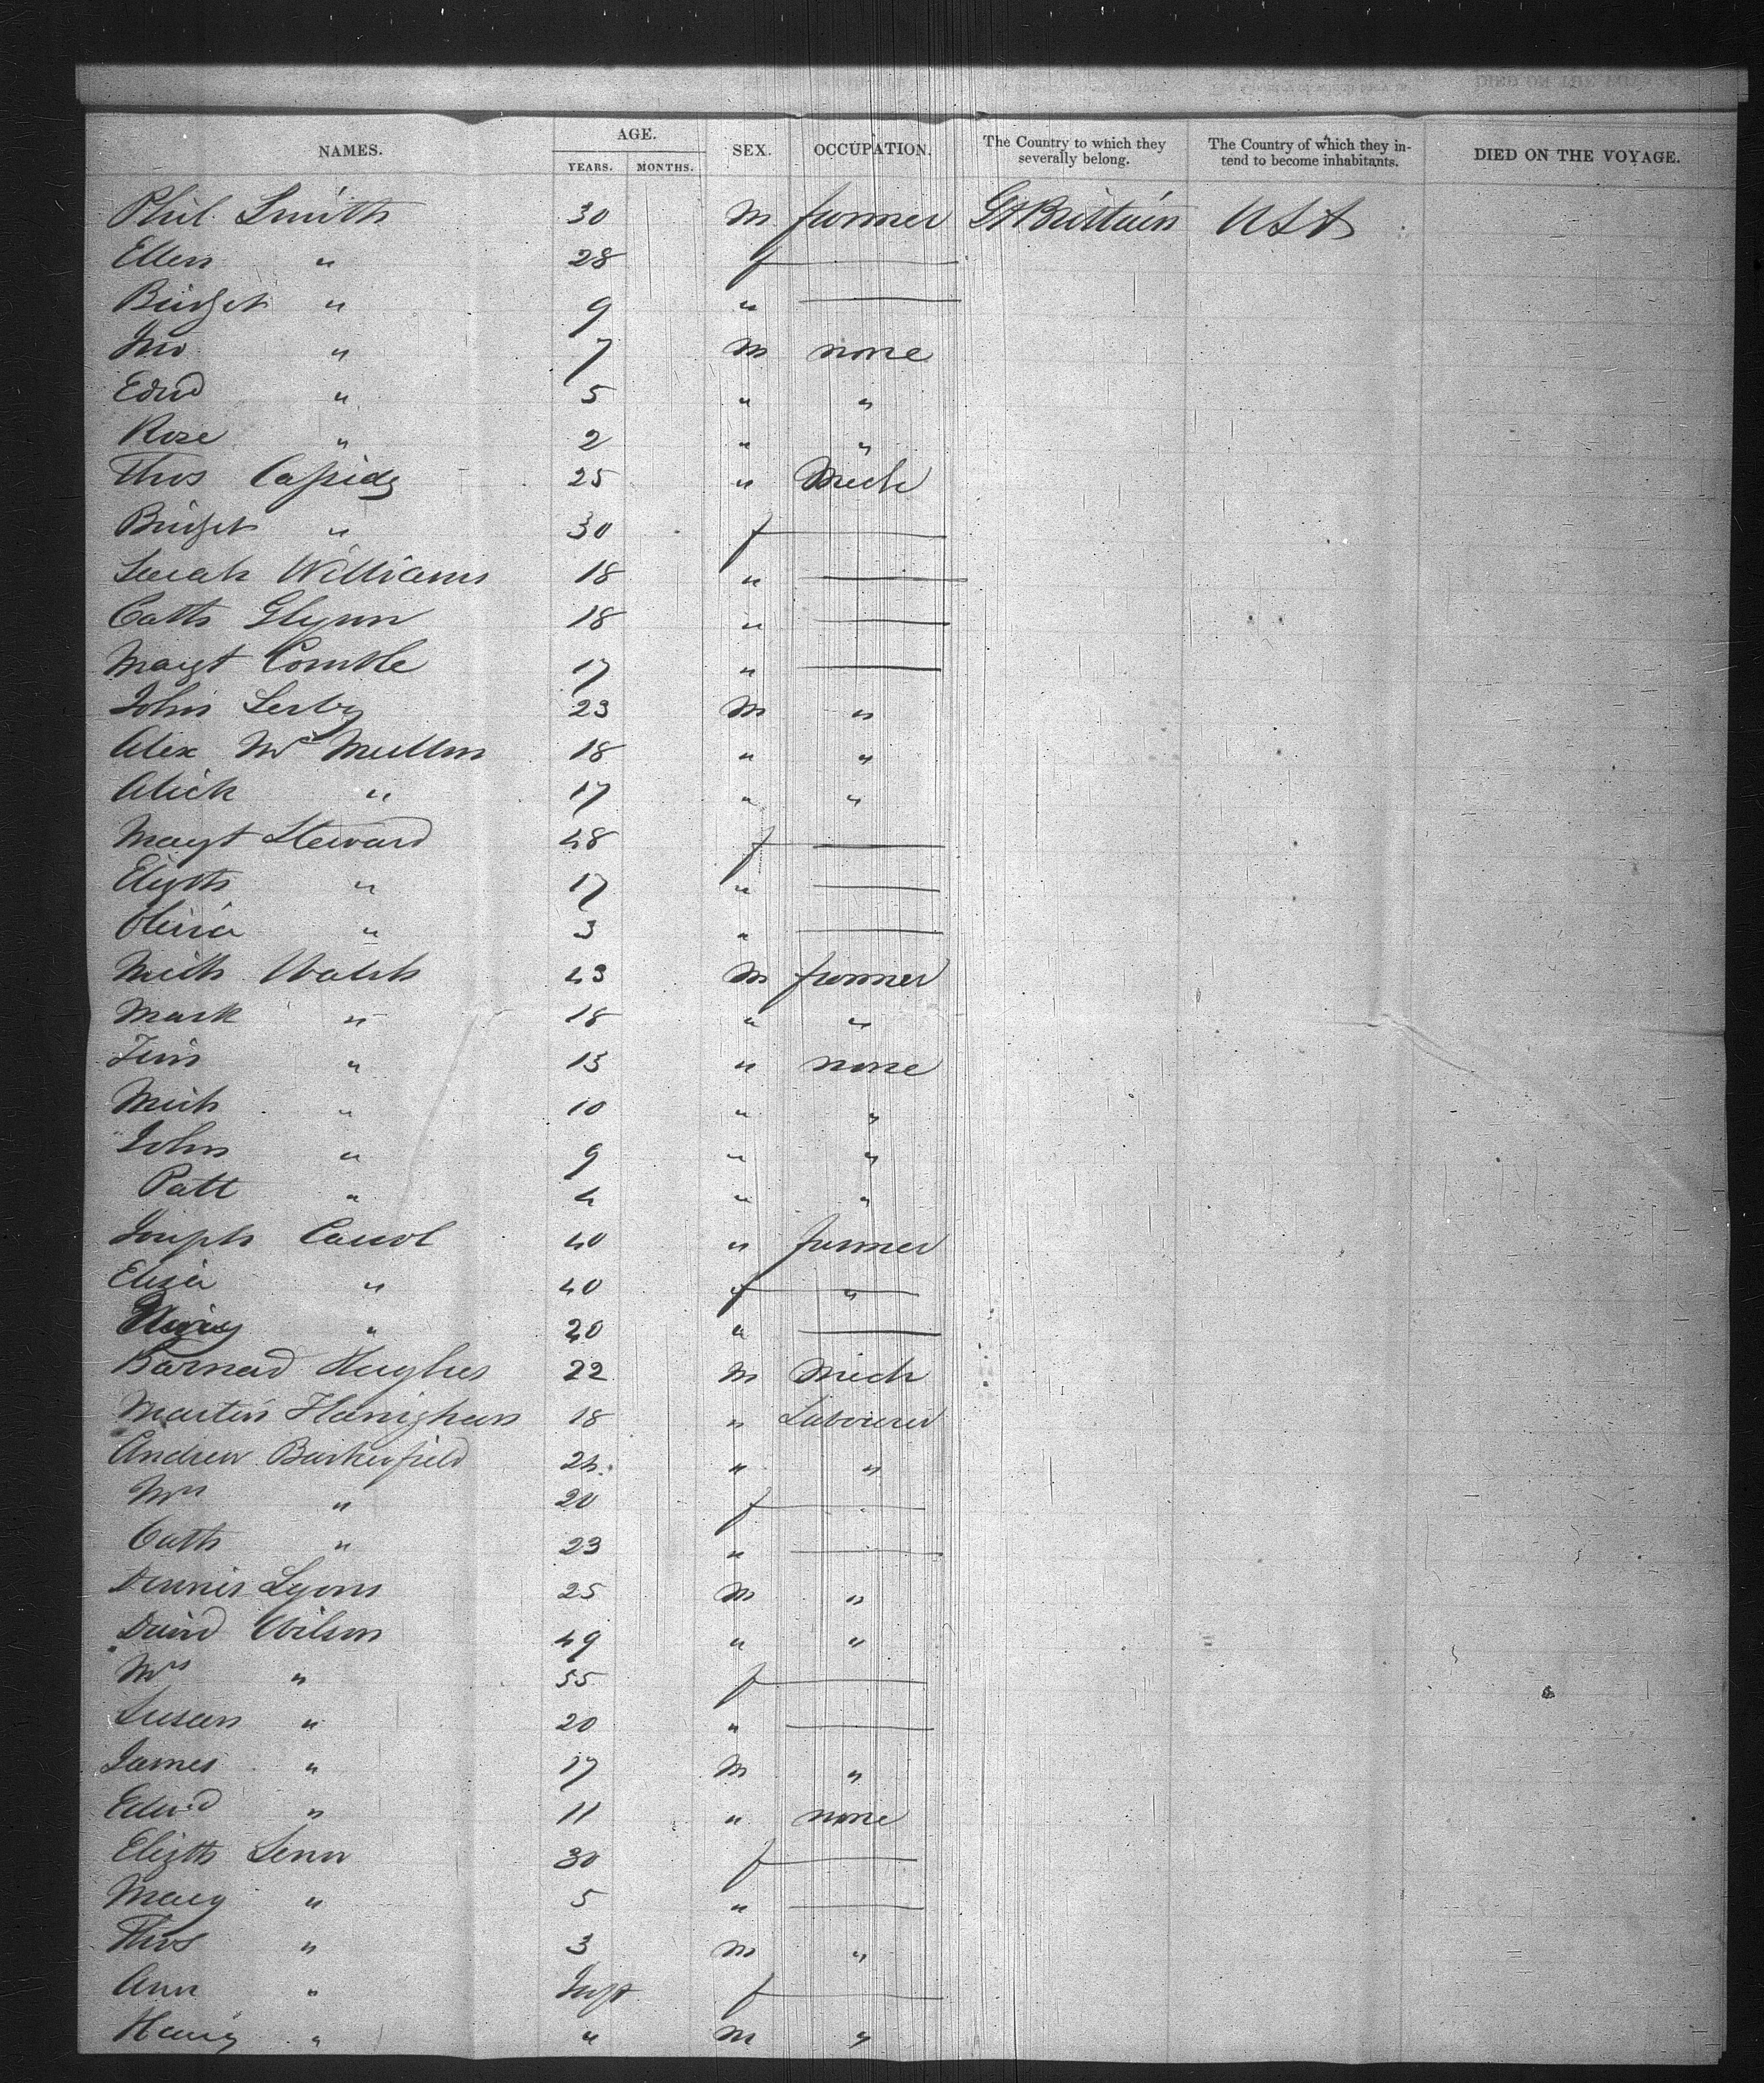 NAMES. AGE. YEARS. MONTHS. SEX. OCCUPATION. The Country to which they severally belong. The Country of which they intend to become inhabitants. DIED ON THE VOYAGE.
Phil. Smith 30 m farmer Gt Brittain USA
Ellen " 28 f
Bridget " 9 "
Jno " 7 m none
Edwd " 5 " "
Rose " 2 " "
Thos Cassidy 25 " Mech
Bridget " 30 f
Sarah Williams 18 "
Cath Glynn 18 "
Margt 17 "
John 23 m "
Alex McMullen 18 " "
Alick " 17 " "
Margt Steward 48 f
Elizth " 17 "
Olivia " 3 "
Mich Walsh 43 m farmer
Mark " 18 " "
" 13 " none
Mich " 10 " "
John " 9 " "
Patt " 4 " "
Joseph Carrol 40 " farmer
Eliza " 40 f "
" 20 "
Barnard Hughes 22 m Mech
Martin Hanighan 18 " Labourer
Andrew 24 " "
Mrs " 20 f
Cath " 23 "
Dennis Lyons 25 m "
David Wilson 49 " "
Mrs " 55 f
Susan " 20 "
James " 17 m "
Edwd " 11 " none
Elizth 30 f
Mary " 5 "
Thos " 3 m "
Ann " Inft f
" " m "